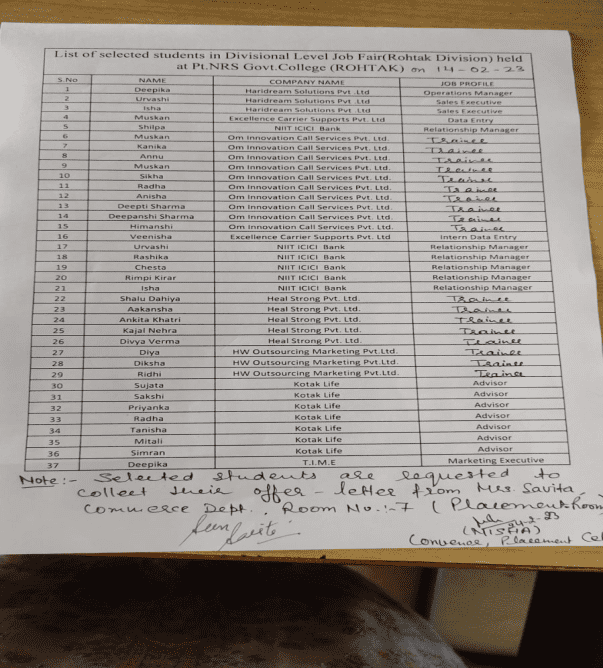 List of selected students in Divisional Level Job Fair(Rohtak Division) held
at Pt.NRS Govt.College (ROHTAK) on 14-02-23
S.No NAME COMPANY NAME JOB PROFILE
1 Deepika Haridream Solutions Pvt .Ltd Operations Manager
2 Urvashi Haridream Solutions Pvt .Ltd Sales Executive
3 Isha Haridream Solutions Pvt .Ltd Sales Executive
4 Muskan Excellence Carrier Supports Pvt. Ltd Data Entry
5 Shilpa NIIT ICICI Bank Relationship Manager
6 Muskan Om Innovation Call Services Pvt. Ltd. Trainee
7 Kanika Om Innovation Call Services Pvt. Ltd. Trainee
8 Annu Om Innovation Call Services Pvt. Ltd. Trainee
9 Muskan Om Innovation Call Services Pvt. Ltd. Trainee
10 Sikha Om Innovation Call Services Pvt. Ltd. Trainee
11 Radha Om Innovation Call Services Pvt. Ltd. Trainee
12 Anisha Om Innovation Call Services Pvt. Ltd. Trainee
13 Deepti Sharma Om Innovation Call Services Pvt. Ltd. Trainee
14 Deepanshi Sharma Om Innovation Call Services Pvt. Ltd. Trainee
15 Himanshi Om Innovation Call Services Pvt. Ltd. Trainee
16 Veenisha Excellence Carrier Supports Pvt. Ltd Intern Data Entry
17 Urvashi NIIT ICICI Bank Relationship Manager
18 Rashika NIIT ICICI Bank Relationship Manager
19 Chesta NIIT ICICI Bank Relationship Manager
20 Rimpi Kirar NIIT ICICI Bank Relationship Manager
21 Isha NIIT ICICI Bank Relationship Manager
22 Shalu Dahiya Heal Strong Pvt. Ltd. Trainee
23 Aakansha Heal Strong Pvt. Ltd. Trainee
24 Ankita Khatri Heal Strong Pvt. Ltd. Trainee
25 Kajal Nehra Heal Strong Pvt. Ltd. Trainee
26 Divya Verma Heal Strong Pvt. Ltd. Trainee
27 Diya HW Outsourcing Marketing Pvt.Ltd. Trainee
28 Diksha HW Outsourcing Marketing Pvt.Ltd. Trainee
29 Ridhi HW Outsourcing Marketing Pvt.Ltd. Trainee
30 Sujata Kotak Life Advisor
31 Sakshi Kotak Life Advisor
32 Priyanka Kotak Life Advisor
33 Radha Kotak Life Advisor
34 Tanisha Kotak Life Advisor
35 Mitali Kotak Life Advisor
36 Simran Kotak Life Advisor
37 Deepika T.I.M.E Marketing Executive
Note:- Selected students are requested to
collect their offer-letter from Mrs. Savita
Commerce Dept., Room No.:-7 (Placement Room
(NISHA)
Convenor, Placement Cel